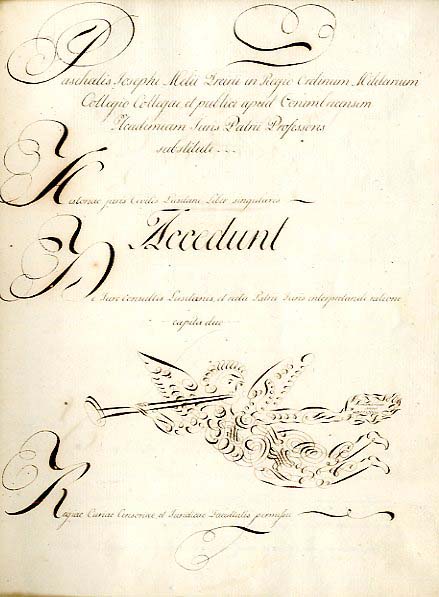 Paschalis Josephi Melii Freirii in Regio Ordinum Militarium
Collegio Collegae et publici apud Conimbricensem
Academiam Juris Patrii Professoris
substituti
Historiae juris Civilis Lusitani Liber singularis
Accedunt
De Jure Consultis Lusitanis, et recta Patrii Juris interpretandi ratione
capita duo
Regiae Curiae Censoriae et Juridicae Facultatis permissu